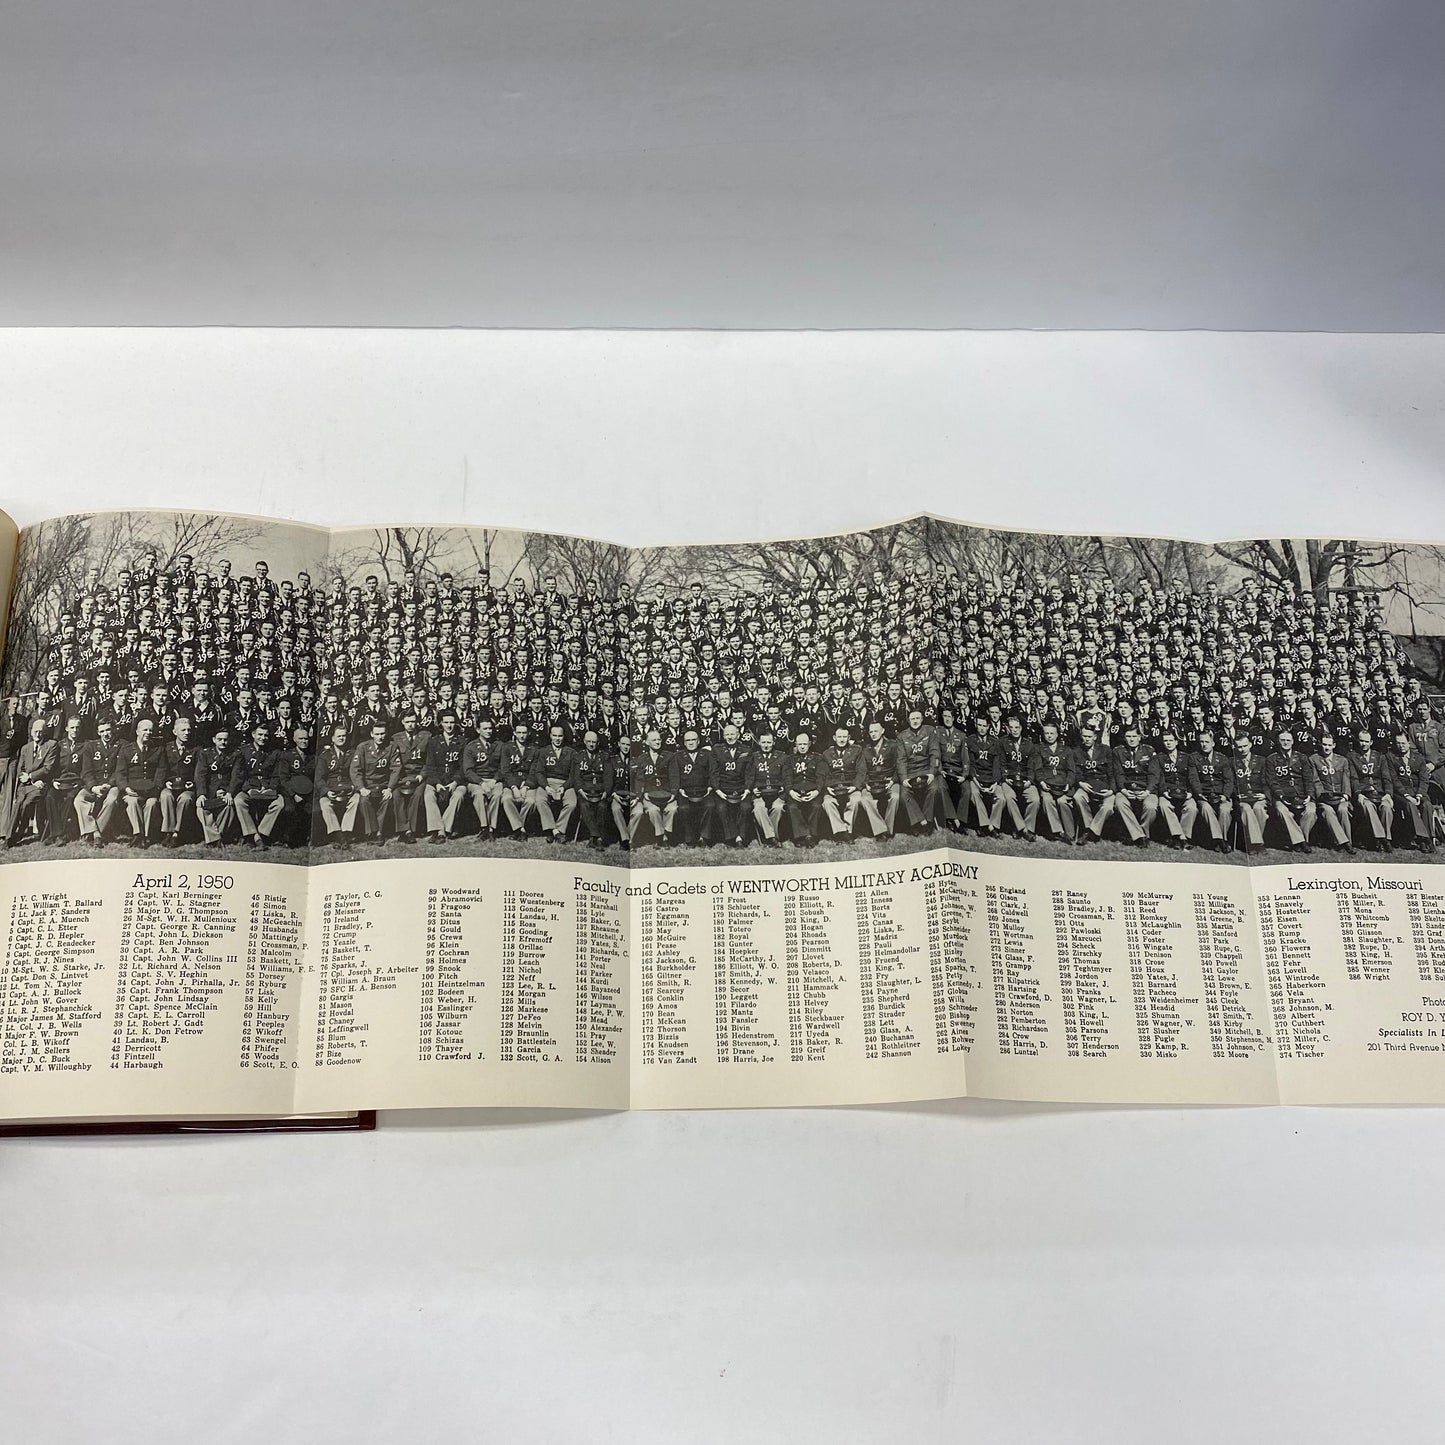 April 2, 1950
Faculty and Cadets of WENTWORTH MILITARY ACADEMY
Lexington, Missouri
1 V. C. Wright
2 Lt. William T. Ballard
3 Lt. Jack F. Sanders
4 Capt. E. A. Muench
5 Capt. C. L. Etter
6 Capt. R. D. Hepler
7 Capt. J. C. Readecker
8 Capt. George Simpson
9 Capt. R. J. Nines
10 M-Sgt. W. S. Starke, Jr.
11 Capt. Don S. Lintvet
12 Lt. Tom N. Taylor
13 Capt. A. J. Bullock
Lt. John W. Gover
Lt. R. J. Stephanchick
Major James M. Stafford
Lt. Col. J. B. Wells
Major F. W. Brown
Col. L. B. Wikoff
Col. J. M. Sellers
Major D. C. Buck
Capt. V. M. Willoughby
23 Capt. Karl Berninger
24 Capt. W. L. Stagner
25 Major D. G. Thompson
26 M-Sgt. W. H. Mullenioux
27 Capt. George R. Canning
28 Capt. John L. Dickson
29 Capt. Ben Johnson
30 Capt. A. R. Park
31 Capt. John W. Collins III
32 Lt. Richard A. Nelson
33 Capt. S. V. Heghin
34 Capt. John J. Pirhalla, Jr.
35 Capt. Frank Thompson
36 Capt. John Lindsay
37 Capt. Spence McClain
38 Capt. E. L. Carroll
39 Lt. Robert J. Gadt
40 Lt. K. Don Fetrow
41 Landau, B.
42 Derricott
43 Fintzell
44 Harbaugh
45 Ristig
46 Simon
47 Liska, R.
48 McGeachin
49 Husbands
50 Mattingly
51 Crossman, P.
52 Malcolm
53 Baskett, L.
54 Williams, F. E.
55 Dorsey
56 Ryburg
57 Lisk
58 Kelly
59 Hill
60 Hanbury
61 Peeples
62 Wikoff
63 Swengel
64 Phifer
65 Woods
66 Scott, E. O.
67 Taylor, C. G.
68 Salyers
69 Meissner
70 Ireland
71 Bradley, P.
72 Crump
73 Yeazle
74 Baskett, T.
75 Sather
76 Sparks, J.
77 Cpl. Joseph F. Arbeiter
78 William A. Braun
79 SFC H. A. Benson
80 Gargis
81 Mason
82 Hovdal
83 Chaney
84 Leffingwell
85 Blum
86 Roberts, T.
87 Bize
88 Goodenow
89 Woodward
90 Abramovici
91 Fragoso
92 Santa
93 Ditus
94 Gould
95 Crews
96 Klein
97 Cochran
98 Holmes
99 Snook
100 Fitch
101 Heintzelman
102 Bodeen
103 Weber, H.
104 Esslinger
105 Wilburn
106 Jassar
107 Kotouc
108 Schizas
109 Thayer
110 Crawford J.
111 Doores
112 Wuestenberg
113 Gonder
114 Landau, H.
115 Ross
116 Gooding
117 Efremoff
118 Orillac
119 Burrow
120 Leach
121 Nichol
122 Neff
123 Lee, R. L.
124 Morgan
125 Mills
126 Markese
127 DeFeo
128 Melvin
129 Braunlin
130 Battlestein
131 Garcia
132 Scott, G. A.
133 Pilley
134 Marshall
135 Lyle
136 Baker, G.
137 Rheaume
138 Mitchell, J.
139 Yates, S.
140 Richards, C.
141 Porter
142 Neal
143 Parker
144 Kurdi
145 Bayazeed
146 Wilson
147 Layman
148 Lee, P. W.
149 Mead
150 Alexander
151 Pray
152 Lee, W.
153 Sheader
154 Alison
155 Margeas
156 Castro
157 Eggmann
158 Miller, J.
159 May
160 McGuire
161 Pease
162 Ashley
163 Jackson, G.
164 Burkholder
165 Giltner
166 Smith, R.
167 Searcey
168 Conklin
169 Amos
170 Bean
171 McKean
172 Thorson
173 Bizzis
174 Knudsen
175 Sievers
176 Van Zandt
177 Frost
178 Schlueter
179 Richards, L.
180 Palmer
181 Totero
182 Royal
183 Gunter
184 Hoepker
185 McCarthy, J.
186 Elliott, W. O.
187 Smith, J.
188 Kennedy, W.
189 Secor
190 Leggett
191 Filardo
192 Mantz
193 Fansler
194 Bivin
195 Hedenstrom
196 Stevenson, J.
197 Drane
198 Harris, Joe
199 Russo
200 Elliott, R.
201 Sobush
202 King, D.
203 Hogan
204 Rhoads
205 Pearson
206 Dimmitt
207 Llovet
208 Roberts, D.
209 Velasco
210 Mitchell, A.
211 Hammack
212 Chubb
213 Helvey
214 Riley
215 Steckbauer
216 Wardwell
217 Uyeda
218 Baker, R.
219 Greif
220 Kent
221 Allen
222 Inness
223 Borts
224 Vits
225 Canas
226 Liska, E.
227 Madriz
228 Pauli
229 Helmandollar
230 Fruend
231 King, T.
232 Fry
233 Slaughter, L.
234 Payne
235 Shepherd
236 Burdick
237 Strader
238 Lett
239 Glass, A.
240 Buchanan
241 Rothleitner
242 Shannon
243 Hyten
244 McCarthy, R.
245 Filbert
246 Johnson, W.
247 Greene, T.
248 Seybt
249 Schneider
250 Murdock
251 Oftelie
252 Risley
253 Morton
254 Sparks, T.
255 Petty
256 Kennedy, J.
257 Globus
258 Wills
259 Schrieder
260 Bishop
261 Sweeney
262 Aines
263 Rohwer
264 Lokey
265 England
266 Olson
267 Clark, J.
268 Caldwell
269 Jones
270 Mulloy
271 Wortman
272 Lewis
273 Sinner
274 Glass, F.
275 Grampp
276 Ray
277 Kilpatrick
278 Hartsing
279 Crawford, D.
280 Anderson
281 Norton
282 Pemberton
283 Richardson
284 Crow
285 Harris, D.
286 Luntzel
287 Raney
288 Saunto
289 Bradley, J. B.
290 Crossman, R.
291 Otts
292 Pawloski
293 Marcucci
294 Scheck
295 Zirschky
296 Thomas
297 Teghtmyer
298 Rardon
299 Baker, J.
300 Franks
301 Wagner, L.
302 Fink
303 King, L.
304 Howell
305 Parsons
306 Terry
307 Henderson
308 Search
309 McMurray
310 Bauer
311 Reed
312 Romkey
313 McLaughlin
314 Coder
315 Foster
316 Wingate
317 Denison
318 Crose
319 Houx
320 Yates, J.
321 Barnard
322 Pacheco
323 Weidenheimer
324 Headid
325 Shuman
326 Wagner, W.
327 Slusher
328 Fugle
329 Kamp, R.
330 Misko
331 Young
332 Milligan
333 Jackson, N.
334 Greene, B.
335 Martin
336 Sanford
337 Park
338 Rupe, G.
339 Chappell
340 Powell
341 Gaylor
342 Lowe
343 Brown, E.
344 Foyle
345 Cleek
346 Detrick
347 Smith, T.
348 Kirby
349 Mitchell, B.
350 Stephenson, M.
351 Johnson, C.
352 Moore
353 Lennan
354 Snavely
355 Hostetter
356 Eisen
357 Covert
358 Rump
359 Kracke
360 Flowers
361 Bennett
362 Fehr
363 Lovell
364 Wintrode
365 Haberkorn
366 Vela
367 Bryant
368 Johnson, M.
369 Albert
370 Cuthbert
371 Nichols
372 Miller, C.
373 Mcoy
374 Tischer
375 Bucheit
376 Miller, R.
377 Mons
378 Whitcomb
379 Henry
380 Gliason
381 Slaughter, E.
382 Rupe, D.
383 King, H.
384 Emerson
385 Wenner
386 Wright
387 Biester
388 Eitel
Photo
ROY D. Y
Specialists in L
201 Third Avenue N